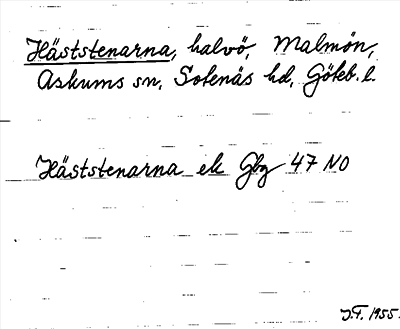 Häststenarna, halvö, Malmön,
Askums sn, Sotenäs hd, Göteb. l.
Häststenarna ek Gbg 47 NO
J.F. 1955.